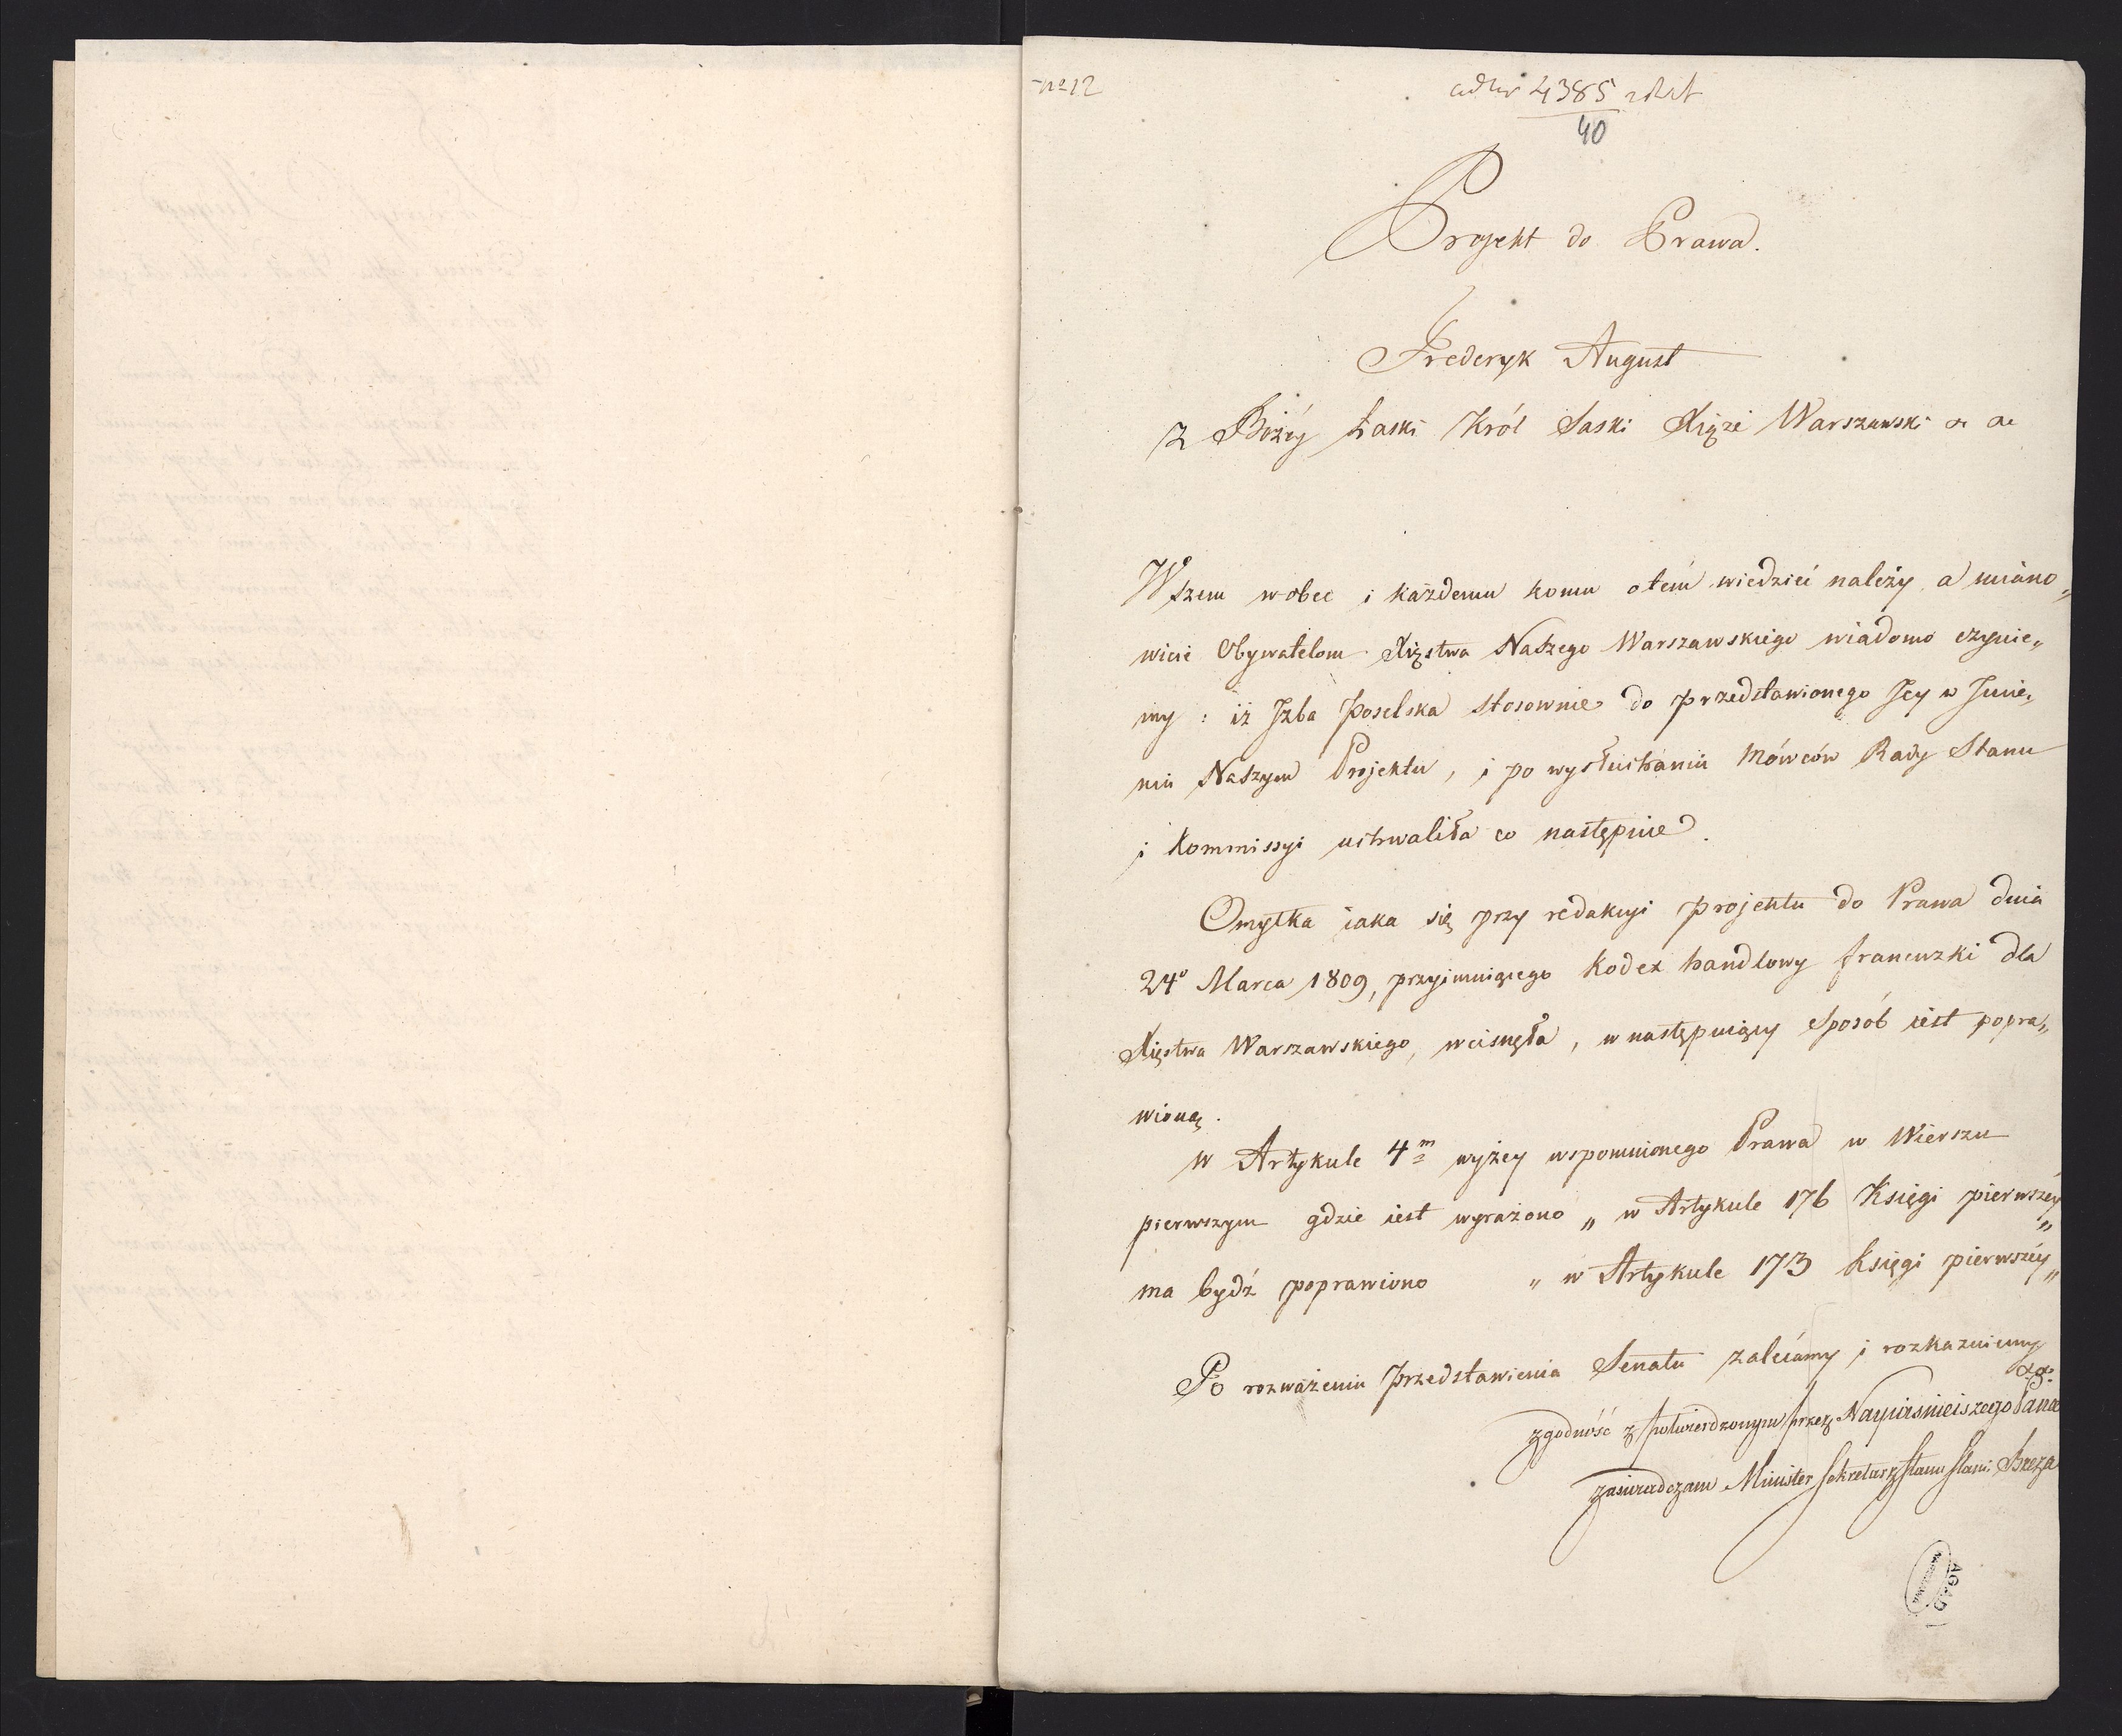 nº 12
ad Nr 4385
40
Projekt do Prawa.
Frederyk August
Z Bożéy Łaski Król Saski Xiąże Warszawski & &
Wszem wobec i każdemu komu otém wiedzieć należy, a miano„
wicie Obywatelom Xięstwa Naszego Warszawskiego wiadomo czynie„
my : iż Jzba Poselska stosownie do przedstawionego Jey w Jmie„
niu Naszym Projektu, i po wysłuchaniu Mówców Rady Stanu
i Kommissyi uchwaliła co następuie.
Omyłka iaka się przy redakcyi projektu do Prawa dnia
24º Marca 1809, przyimuiącego Kodex handlowy francuzki dla
Xięstwa Warszawskiego, wcisnęła, w następuiący sposób iest popra„
wioną.
W Artykule 4m wyżey wspomnionego Prawa w Wierszu
pierwszym gdzie iest wyrażono „ w Artykule 176 Księgi pierwszéy „
ma bydź poprawiono „ w Artykule 173 Księgi pierwszéy „
Po rozważeniu Przedstawienia Senatu zalecamy i rozkazuiemy
&. &.
Zgodność z potwierdzonym przez Nayiaśnieiszego Pana
zaświadczam Minister Sekretarz Stanu Stani: Breza
AGAD
WARSZAWA